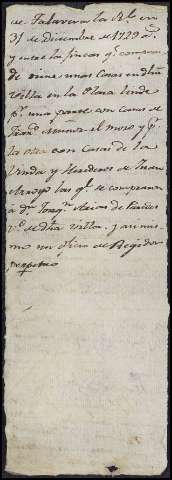 de Talavera la Rl. en
31 de Diciembre de 1729
y entre las fincas qe. compran
de unas Casas en dha
villa en la Plaza linde
pr. una parte con casas de
Franco. el mozo y pr.
la otra con Casas de la
Viuda y Herederos de Juan
las qe. se compraron
a dn. Joaqn. de
vo. de dha villa. y asimis
mo un oficio de Regidor
perpetuo